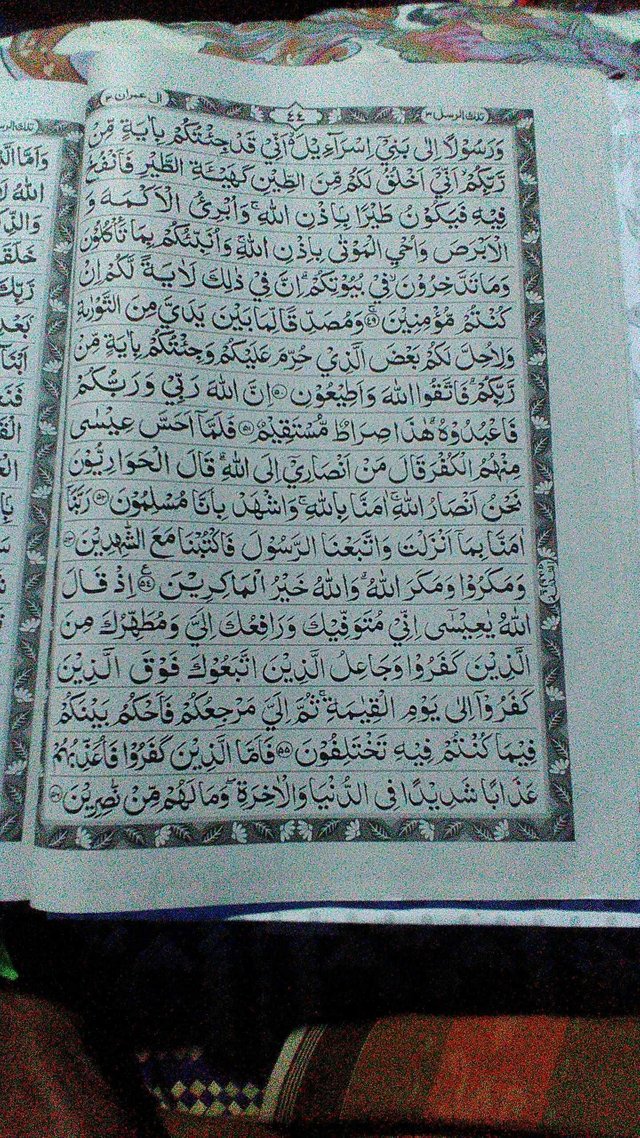 تلك الرسل ٣
٤٤
آل عمران ٣
وَرَسُوْلًا اِلٰى بَنِيْٓ اِسْرَآءِيْلَ اَنِّيْ قَدْ جِئْتُكُمْ بِاٰيَةٍ مِّنْ
رَّبِّكُمْ اَنِّيْٓ اَخْلُقُ لَكُمْ مِّنَ الطِّيْنِ كَهَيْـَٔةِ الطَّيْرِ فَاَنْفُخُ
فِيْهِ فَيَكُوْنُ طَيْرًا بِاِذْنِ اللّٰهِ ۚ وَاُبْرِئُ الْاَكْمَهَ وَ
الْاَبْرَصَ وَاُحْيِ الْمَوْتٰى بِاِذْنِ اللّٰهِ ۚ وَاُنَبِّئُكُمْ بِمَا تَاْكُلُوْنَ
وَمَا تَدَّخِرُوْنَ فِيْ بُيُوْتِكُمْ ؕ اِنَّ فِيْ ذٰلِكَ لَاٰيَةً لَّكُمْ اِنْ
كُنْتُمْ مُّؤْمِنِيْنَ ۚ ﴿٤٩﴾ وَمُصَدِّقًا لِّمَا بَيْنَ يَدَيَّ مِنَ التَّوْرٰىةِ
وَلِاُحِلَّ لَكُمْ بَعْضَ الَّذِيْ حُرِّمَ عَلَيْكُمْ وَجِئْتُكُمْ بِاٰيَةٍ مِّنْ
رَّبِّكُمْ ۫ فَاتَّقُوا اللّٰهَ وَاَطِيْعُوْنِ ﴿٥٠﴾ اِنَّ اللّٰهَ رَبِّيْ وَرَبُّكُمْ
فَاعْبُدُوْهُ ؕ هٰذَا صِرَاطٌ مُّسْتَقِيْمٌ ﴿٥١﴾ فَلَمَّآ اَحَسَّ عِيْسٰى
مِنْهُمُ الْكُفْرَ قَالَ مَنْ اَنْصَارِيْٓ اِلَى اللّٰهِ ؕ قَالَ الْحَوَارِيُّوْنَ
نَحْنُ اَنْصَارُ اللّٰهِ ۚ اٰمَنَّا بِاللّٰهِ ۚ وَاشْهَدْ بِاَنَّا مُسْلِمُوْنَ ﴿٥٢﴾ رَبَّنَآ
اٰمَنَّا بِمَآ اَنْزَلْتَ وَاتَّبَعْنَا الرَّسُوْلَ فَاكْتُبْنَا مَعَ الشّٰهِدِيْنَ ﴿٥٣﴾
وَمَكَرُوْا وَمَكَرَ اللّٰهُ ؕ وَاللّٰهُ خَيْرُ الْمَاكِرِيْنَ ﴿٥٤﴾ ع اِذْ قَالَ
اللّٰهُ يٰعِيْسٰٓى اِنِّيْ مُتَوَفِّيْكَ وَرَافِعُكَ اِلَيَّ وَمُطَهِّرُكَ مِنَ
الَّذِيْنَ كَفَرُوْا وَجَاعِلُ الَّذِيْنَ اتَّبَعُوْكَ فَوْقَ الَّذِيْنَ
كَفَرُوْٓا اِلٰى يَوْمِ الْقِيٰمَةِ ۚ ثُمَّ اِلَيَّ مَرْجِعُكُمْ فَاَحْكُمُ بَيْنَكُمْ
فِيْمَا كُنْتُمْ فِيْهِ تَخْتَلِفُوْنَ ﴿٥٥﴾ فَاَمَّا الَّذِيْنَ كَفَرُوْا فَاُعَذِّبُهُمْ
عَذَابًا شَدِيْدًا فِي الدُّنْيَا وَالْاٰخِرَةِ ۫ وَمَا لَهُمْ مِّنْ نّٰصِرِيْنَ ﴿٥٦﴾
٤٤